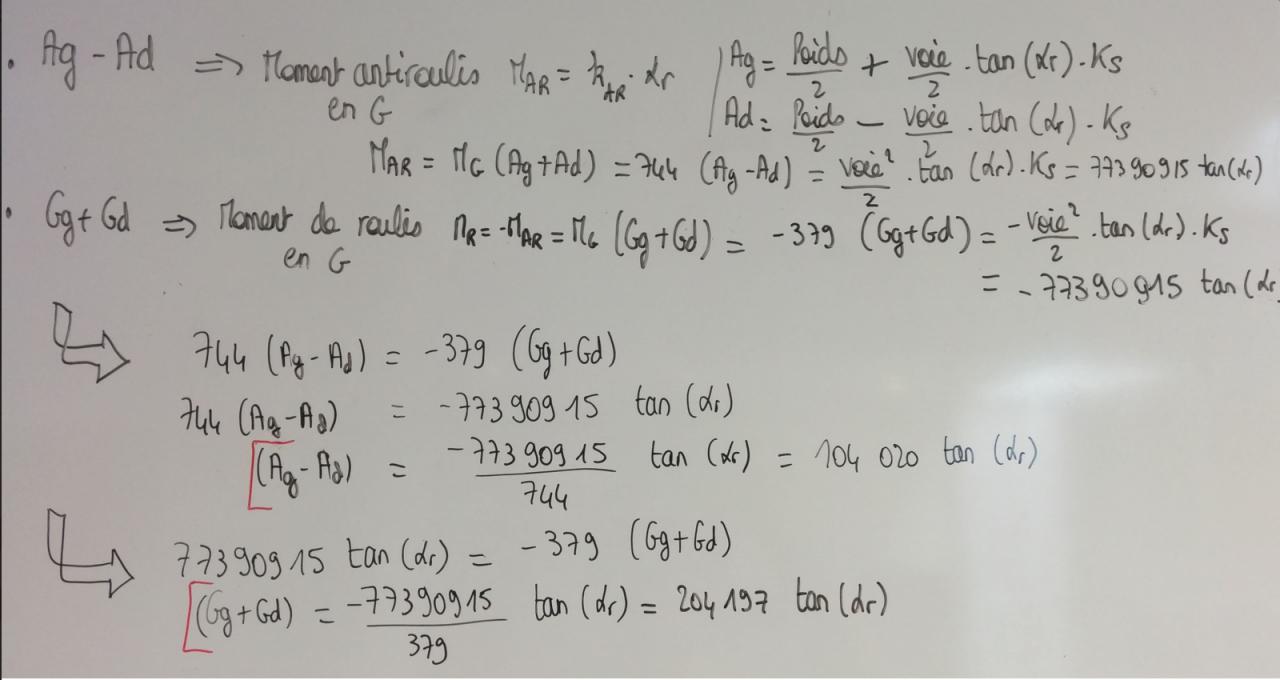 • Ag - Ad ⇒ Moment antiroulis M_AR = k_AR · αr | Ag = Poids/2 + voie/2 · tan(αr) · Ks
en G | Ad = Poids/2 - voie/2 · tan(αr) · Ks
M_AR = M_G (Ag+Ad) = 744 (Ag-Ad) = voie²/2 · tan(αr) · Ks = 77390915 tan(αr)
• Gg+Gd ⇒ Moment de roulis M_R = -M_AR = M_G (Gg+Gd) = -379 (Gg+Gd) = -voie²/2 · tan(αr) · Ks
en G = -77390915 tan(αr
744 (Ag - Ad) = -379 (Gg+Gd)
744 (Ag-Ad) = -77390915 tan(αr)
(Ag-Ad) = -77390915/744 tan(αr) = 104 020 tan(αr)
77390915 tan(αr) = -379 (Gg+Gd)
(Gg+Gd) = -77390915/379 tan(αr) = 204 197 tan(αr)